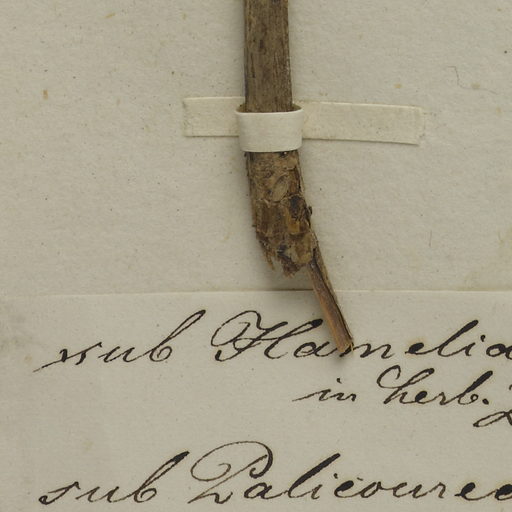 sub Hamelia
in herb.
sub Palicourea